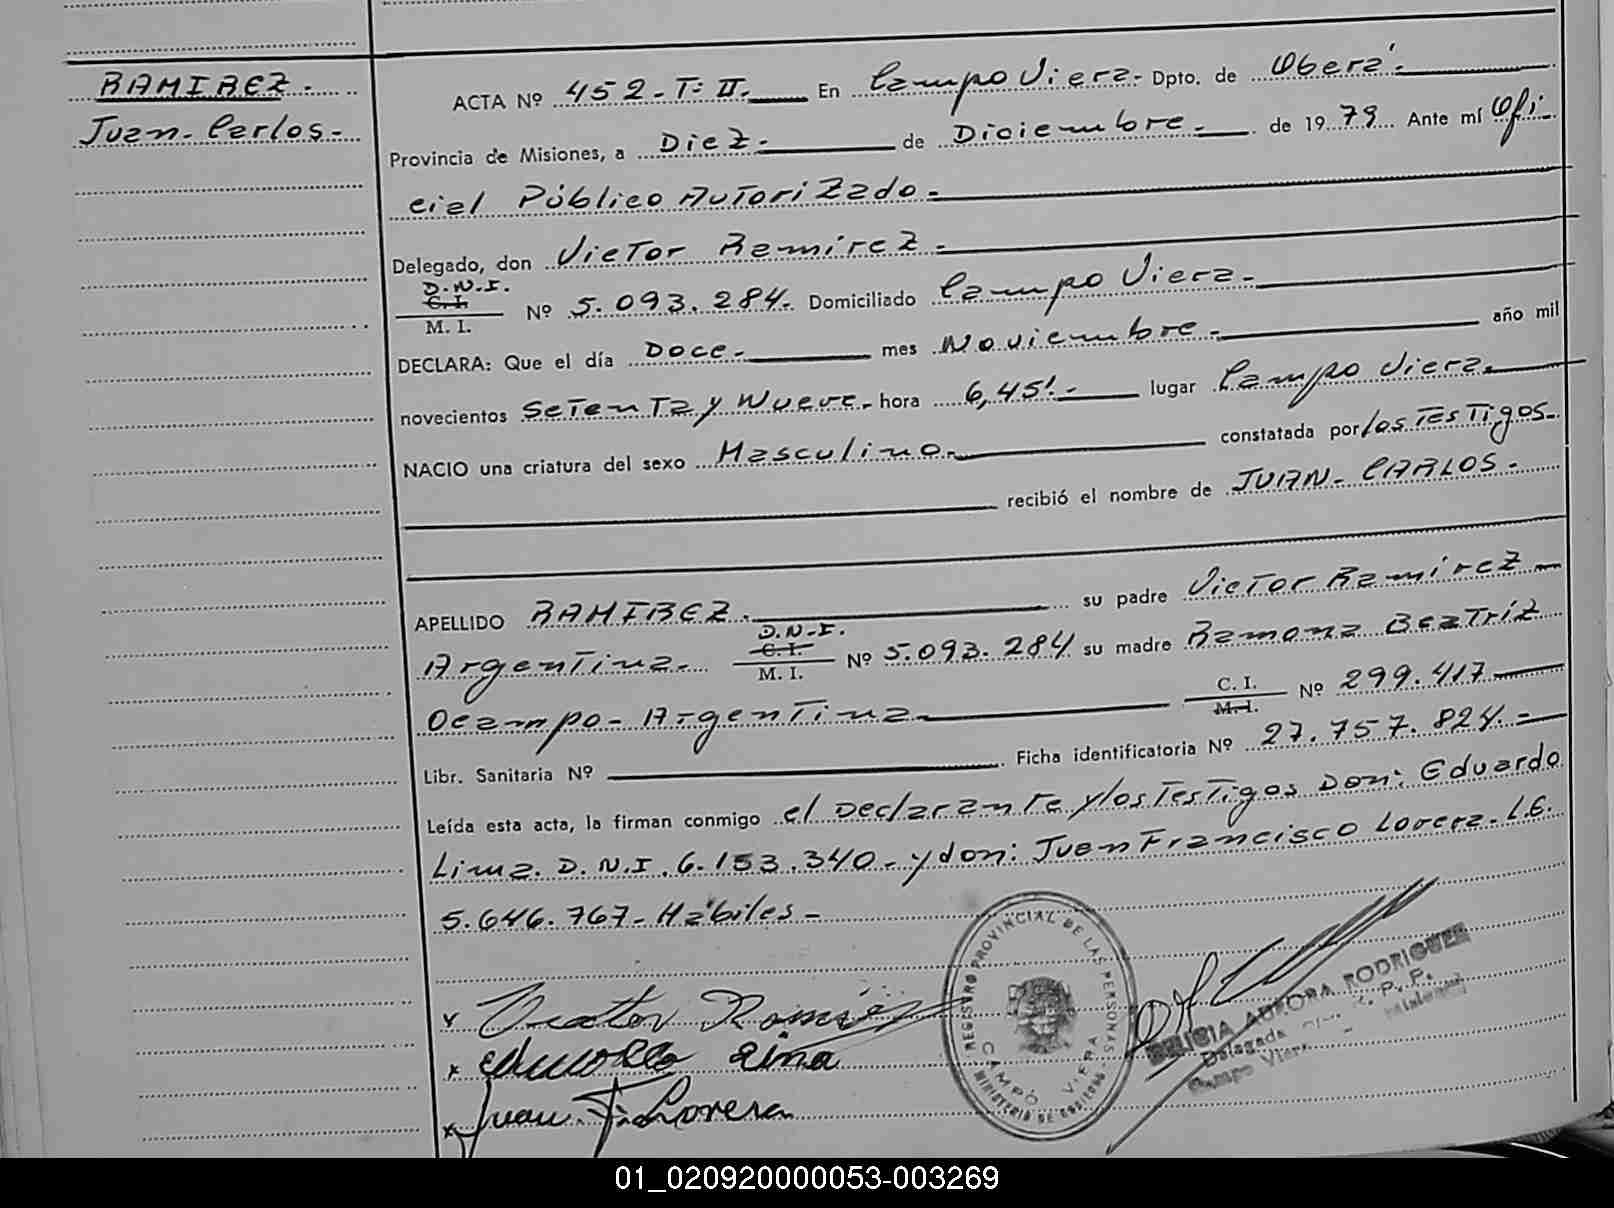 RAMIREZ.
Juan-Carlos-
ACTA Nº 452-T:II. En Campo Viera- Dpto. de Oberá.
Provincia de Misiones, a Diez- de Diciembre- de 1979 Ante mí Ofi-
cial Público Autorizado-
Delegado, don Victor Ramírez-
D.N.I.
C. I.
M. I. Nº 5.093.284. Domiciliado Campo Viera-
DECLARA: Que el día Doce- mes Noviembre- año mil
novecientos Setenta y Nueve- hora 6,45'- lugar Campo Viera-
NACIO una criatura del sexo Masculino- constatada por los Testigos-
recibió el nombre de JUAN-CARLOS-
APELLIDO RAMIREZ. su padre Victor Ramírez-
Argentina- D.N.I. C. I. M. I. Nº 5.093.284 su madre Ramona Beatriz
Ocampo- Argentina- C. I. M. I. Nº 299.417
Libr. Sanitaria Nº Ficha identificatoria Nº 27.757.824.-
Leída esta acta, la firman conmigo el Declarante y los Testigos Don: Eduardo
Lima. D.N.I. 6.153.340- y don: Juan Francisco Lovera- L.E.
5.646.767- Hábiles-
x Victor Ramírez
x Eduardo Lima
x Juan. F. Lovera
REGISTRO PROVINCIAL DE LAS PERSONAS
CAMPO VIERA
MINISTERIO DE GOBIERNO
DELICIA AURORA RODRIGUEZ
Delegada R. P. P.
Campo Viera - Misiones
01_020920000053-003269